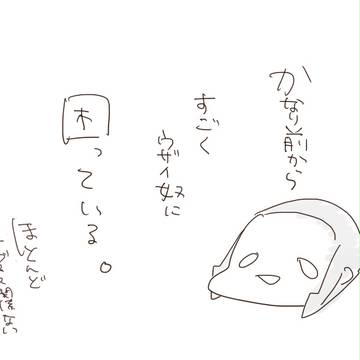 かなり前から
すごく
ウザイ奴に
困っている。
ほとんど
関係ない